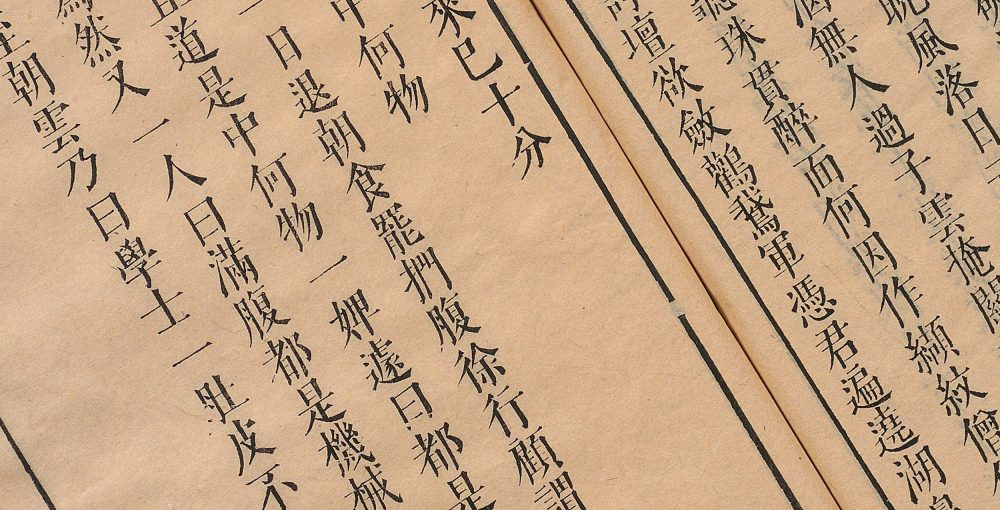 晚風落日
無人過子雲掩關
聽珠貫醉面何因作纈紋僧
詩壇欲斂鸛鵝軍憑君遍遶湖
來巳十分
中何物
一日退朝食罷捫腹徐行顧謂
道是中何物一婢遽曰都是
為然又一人曰滿腹都是機械
朝雲乃曰學士一肚皮不